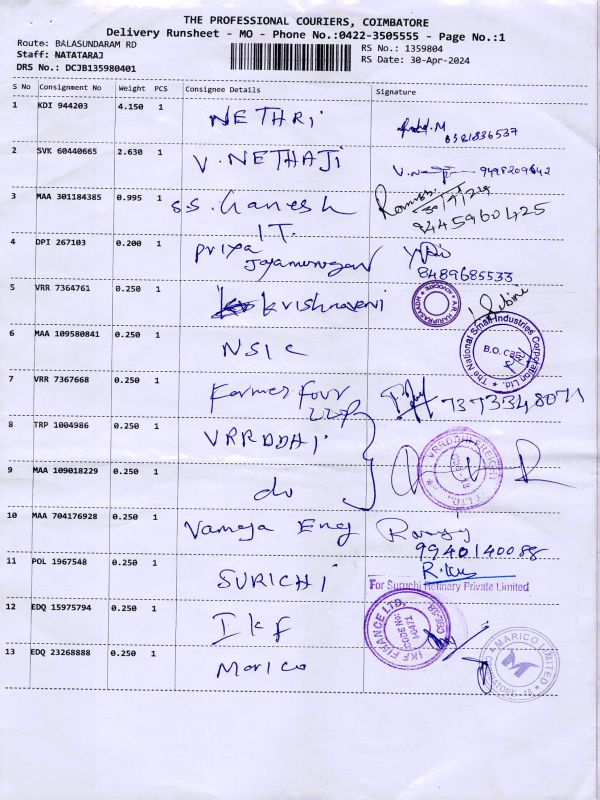 THE PROFESSIONAL COURIERS, COIMBATORE
Delivery Runsheet - MO - Phone No.:0422-3505555 - Page No.:1
Route: BALASUNDARAM RD
RS No.: 1359804
Staff: NATATARAJ
RS Date: 30-Apr-2024
DRS No.: DCJB135980401
S No Consignment No Weight PCS Consignee Details Signature
1 KDI 944203 4.150 1 NETHRi
8381836537
2 SVK 60440665 2.630 1 V.NETHAJI
9498209642
3 MAA 301184385 0.995 1 S.S. Ganesh
I.T.
9445960425
4 DPI 267103 0.200 1 Priya
8489685533
5 VRR 7364761 0.250 1 Krishnaveni
ADVOCATE
6 MAA 109580841 0.250 1 NSIC
The National Small Industries Corporation Ltd.
B.O. CBE
7 VRR 7367668 0.250 1 Farmer Four
7373348071
8 TRP 1004986 0.250 1 VRRDDHI
9 MAA 109018229 0.250 1 do
10 MAA 704176928 0.250 1 Vameja Eng
9940140088
11 POL 1967548 0.250 1 SURICHI
R.
For Suruchi Refinery Private Limited
12 EDQ 15975794 0.250 1 Ikf
IKF FINANCE LTD.
CODE No:
13 EDQ 23268888 0.250 1 Marico
MARICO LIMITED